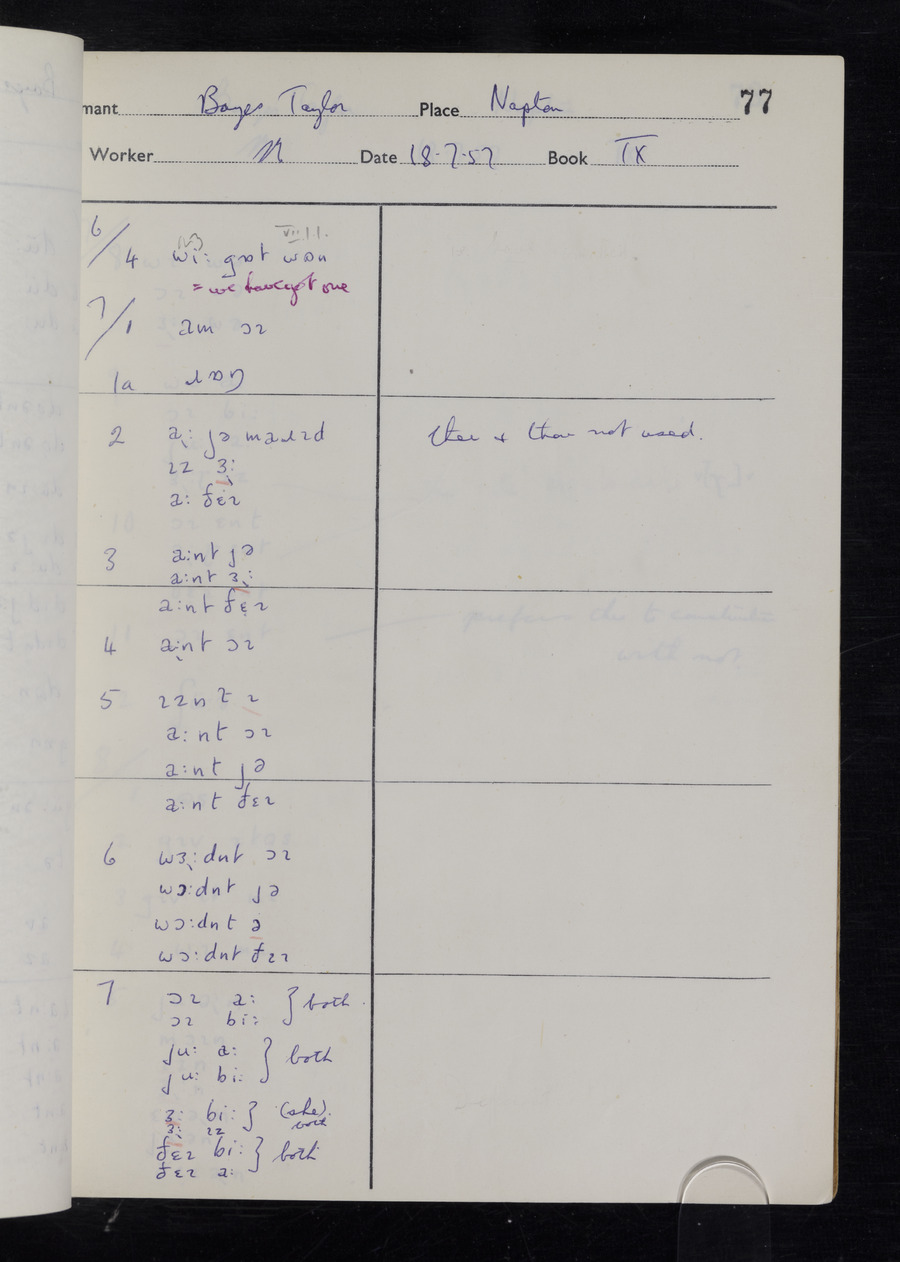 mant Bayes Taylor Place Napton 77
Worker N Date 18-7-57 Book IX
6/4 wiː gɒt wɒn VII.1.
= we have got one
7/1 am ɔɪ
1a
2 aː jə maɹɪd thee & thou not used.
ɪz ɜː
aː ðɛɪ
3 aːnt jə
aːnt ɜː
aːnt ðɛɪ
4 aːnt ɔɪ
5 ɪzn t ɪ
aːnt ɔɪ
aːnt jə
aːnt ðɛɪ
6 wɜːdnt ɔɪ
wɔːdnt jə
wɔːdnt ə
wɔːdnt ðɛɪ
7 ɔɪ aː } both
ɔɪ biː
juː aː } both
juː biː
ɜː biː } (she)
ɜː ɪz both
ðɛɪ biː } both
ðɛɪ aː